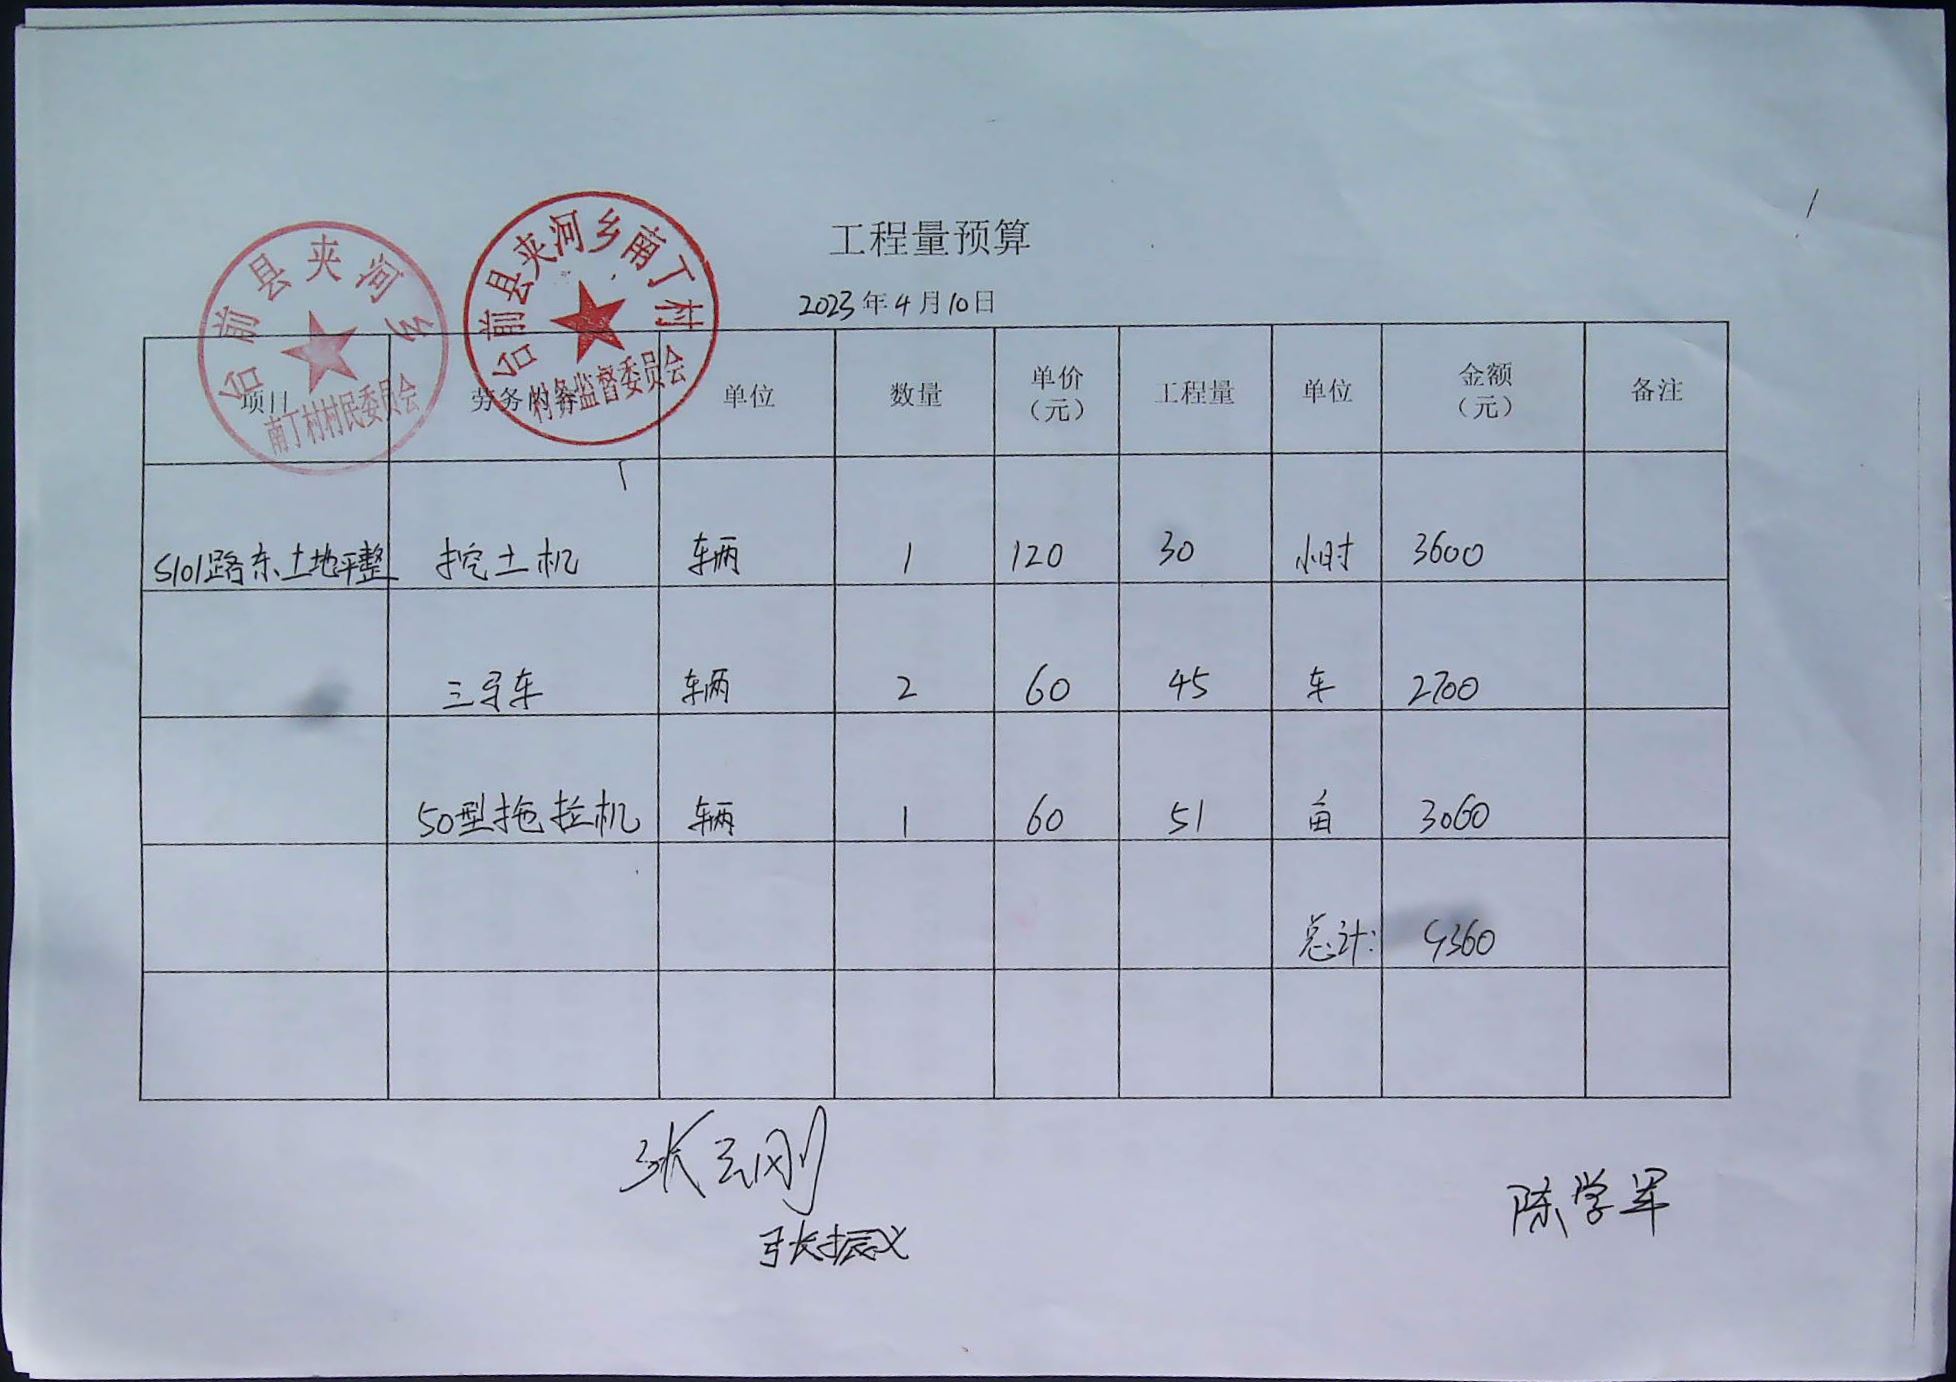 工程量预算
2023年4月10日
台前县夹河乡
南丁村村民委员会
台前县夹河乡南丁村
村务监督委员会
项目 劳务内容 单位 数量 单价（元） 工程量 单位 金额（元） 备注
S101路东土地平整 挖土机 车辆 1 120 30 小时 3600
三马车 车辆 2 60 45 车 2700
50型拖拉机 车辆 1 60 51 亩 3060
总计: 9360
张云刚
张振义
陈学军